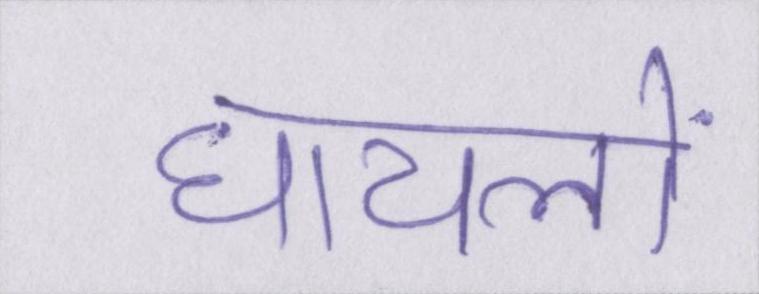 घायलों